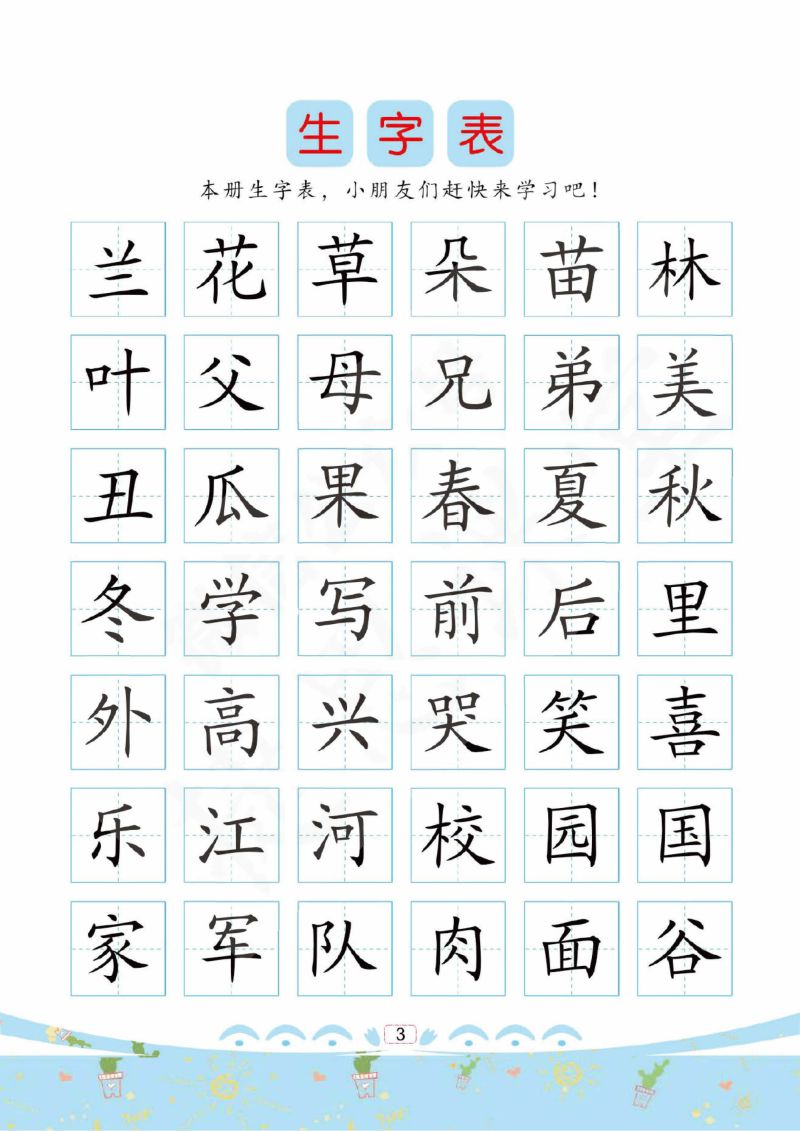 生字表
本册生字表，小朋友们赶快来学习吧！
兰 花 草 朵 苗 林
叶 父 母 兄 弟 美
丑 瓜 果 春 夏 秋
冬 学 写 前 后 里
外 高 兴 哭 笑 喜
乐 江 河 校 园 国
家 军 队 肉 面 谷
3